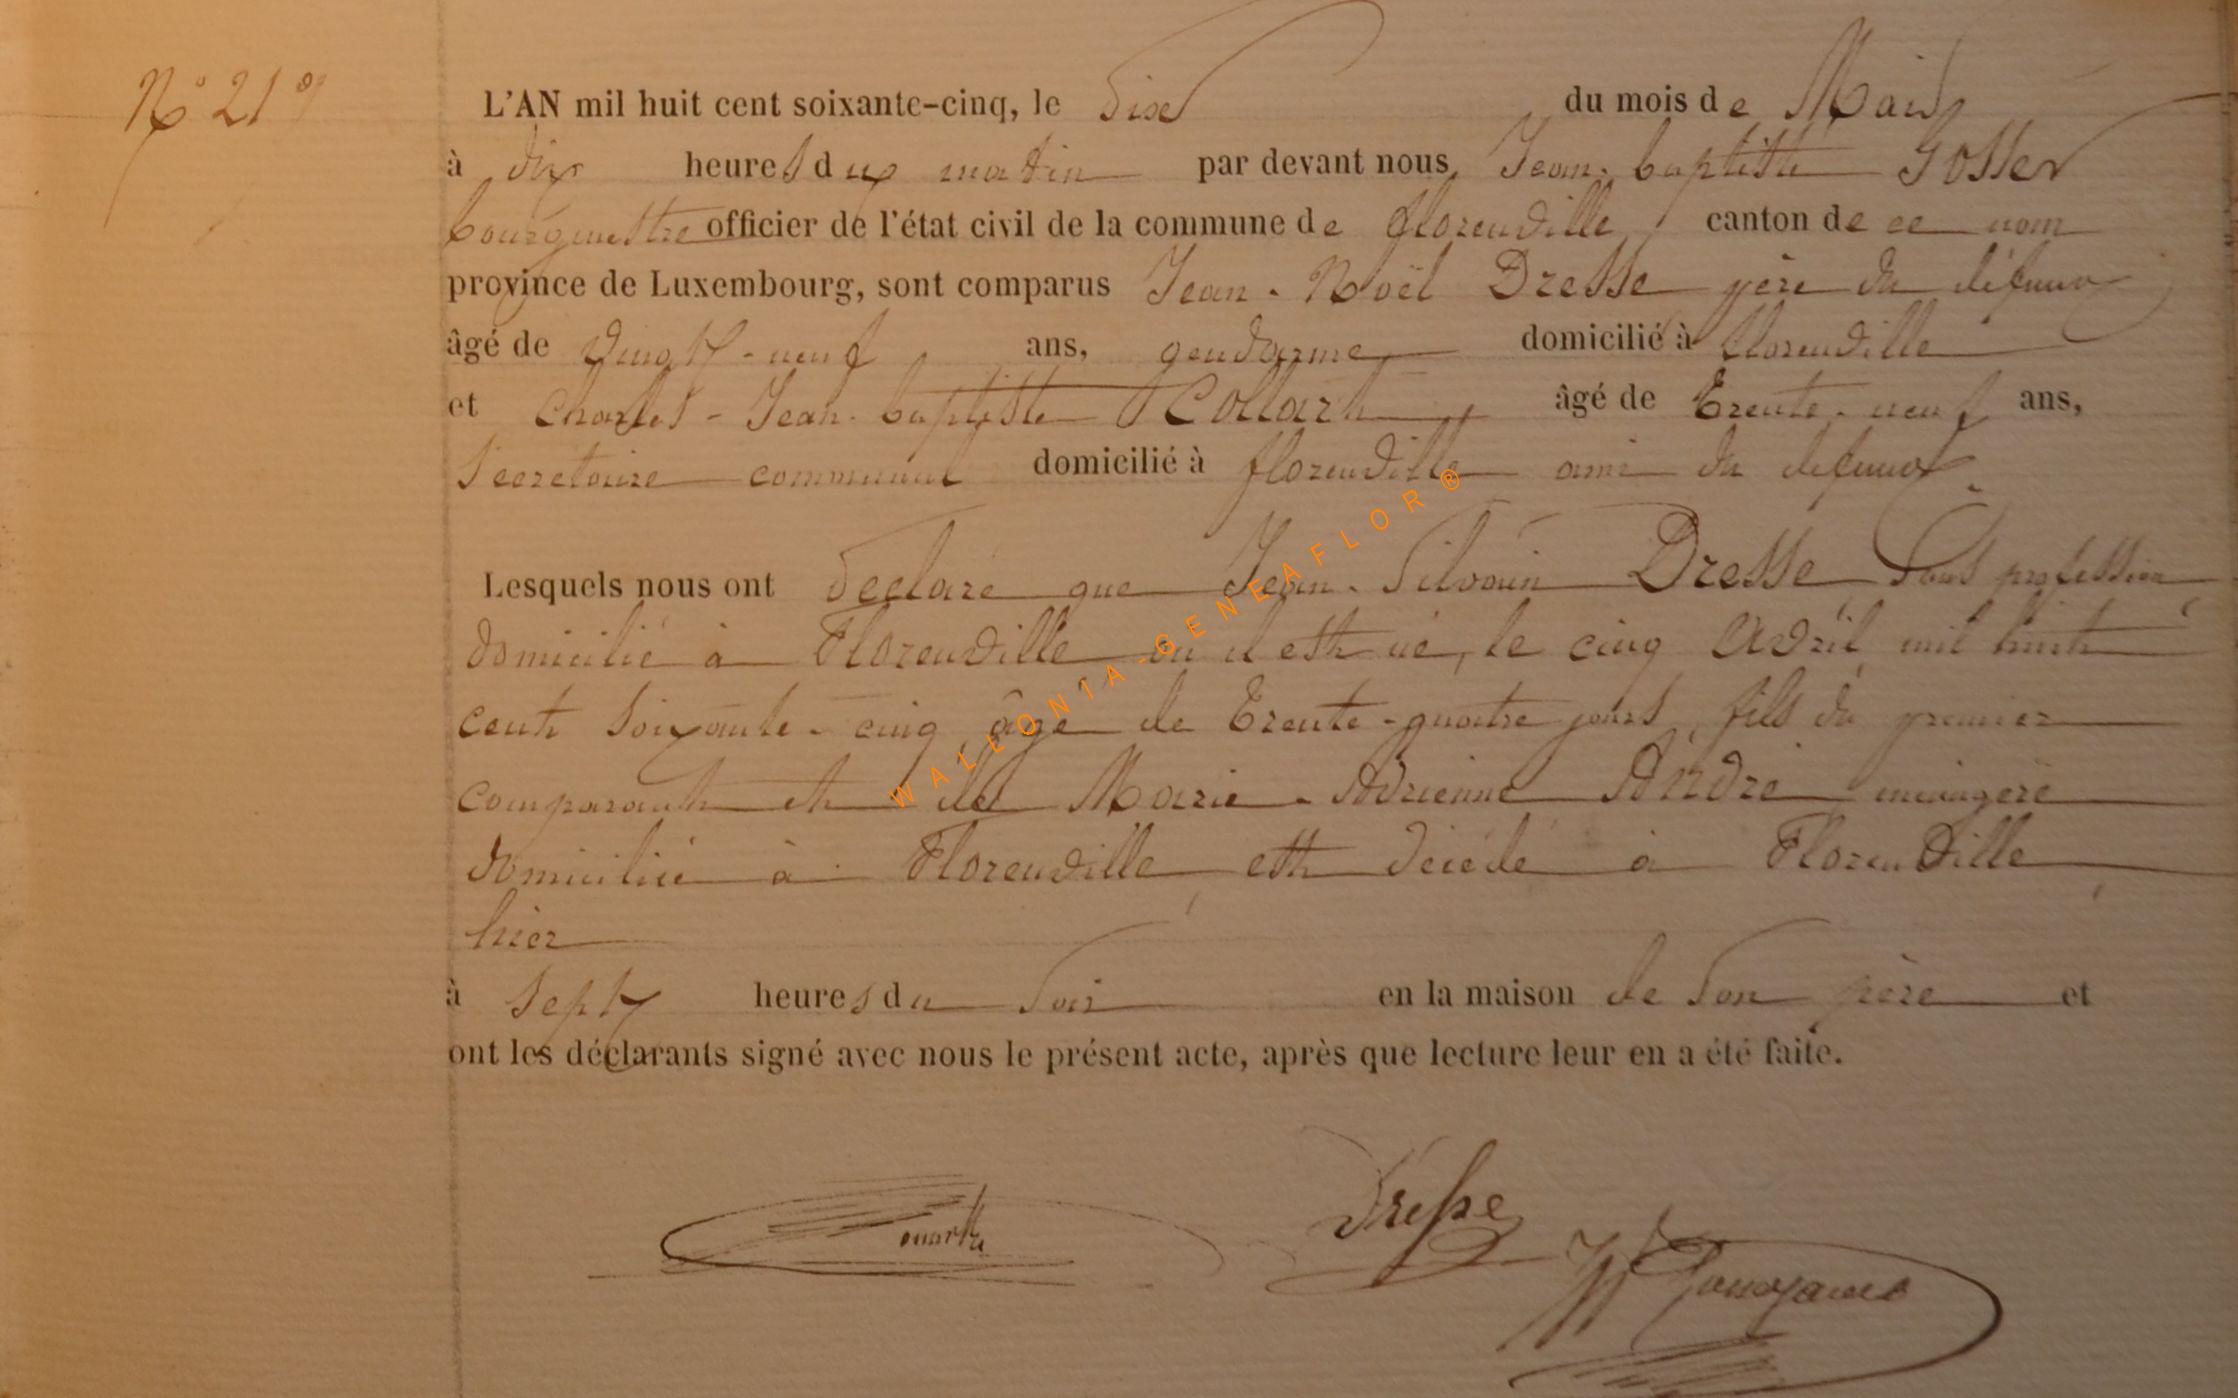 N° 21
L'AN mil huit cent soixante-cinq, le dix du mois de Mai,
à dix heures du matin par devant nous, Jean-baptiste
bourgmestre officier de l'état civil de la commune de florenville, canton de ce nom
province de Luxembourg, sont comparus Jean-Noël Dresse père du défunt
âgé de vingt-neuf ans, gendarme, domicilié à florenville
et Charles-Jean-baptiste Collart, âgé de trente-neuf ans,
secrétaire communal domicilié à florenville ami du défunt.
Lesquels nous ont déclaré que Jean-Silvain Dresse sans profession
domicilié à Florenville où il est né, le cinq Avril mil huit
cent soixante-cinq, âgé de trente-quatre jours, fils du premier
comparant et de Marie-Adrienne André ménagère
domiciliée à Florenville est décédé à Florenville
hier
à sept heures du soir en la maison de son père et
ont les déclarants signé avec nous le présent acte, après que lecture leur en a été faite.
Dresse
WALLONIA-GENEAFLOR®